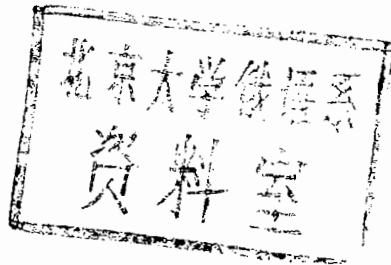 北京大学俄语系
资料室